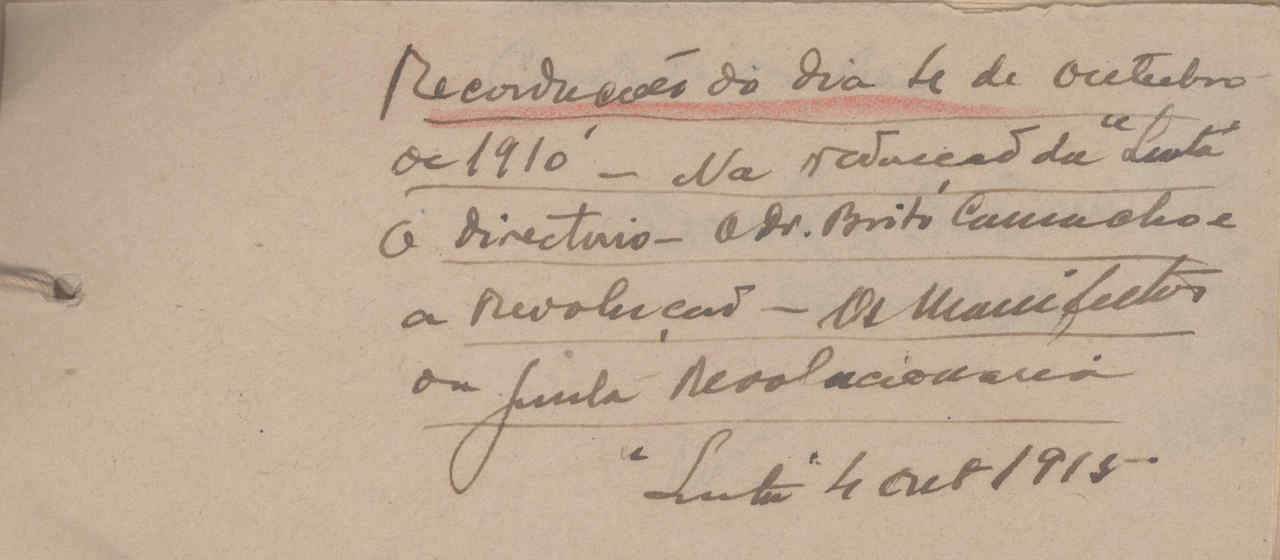 Recordações do dia 4 de Outubro
de 1910 – Na redacção da "Lucta"
O directorio – O dr. Brito Camacho e
a Revolução – Os Manifestos
da Junta Revolucionaria
"Lucta" 4 out 1915